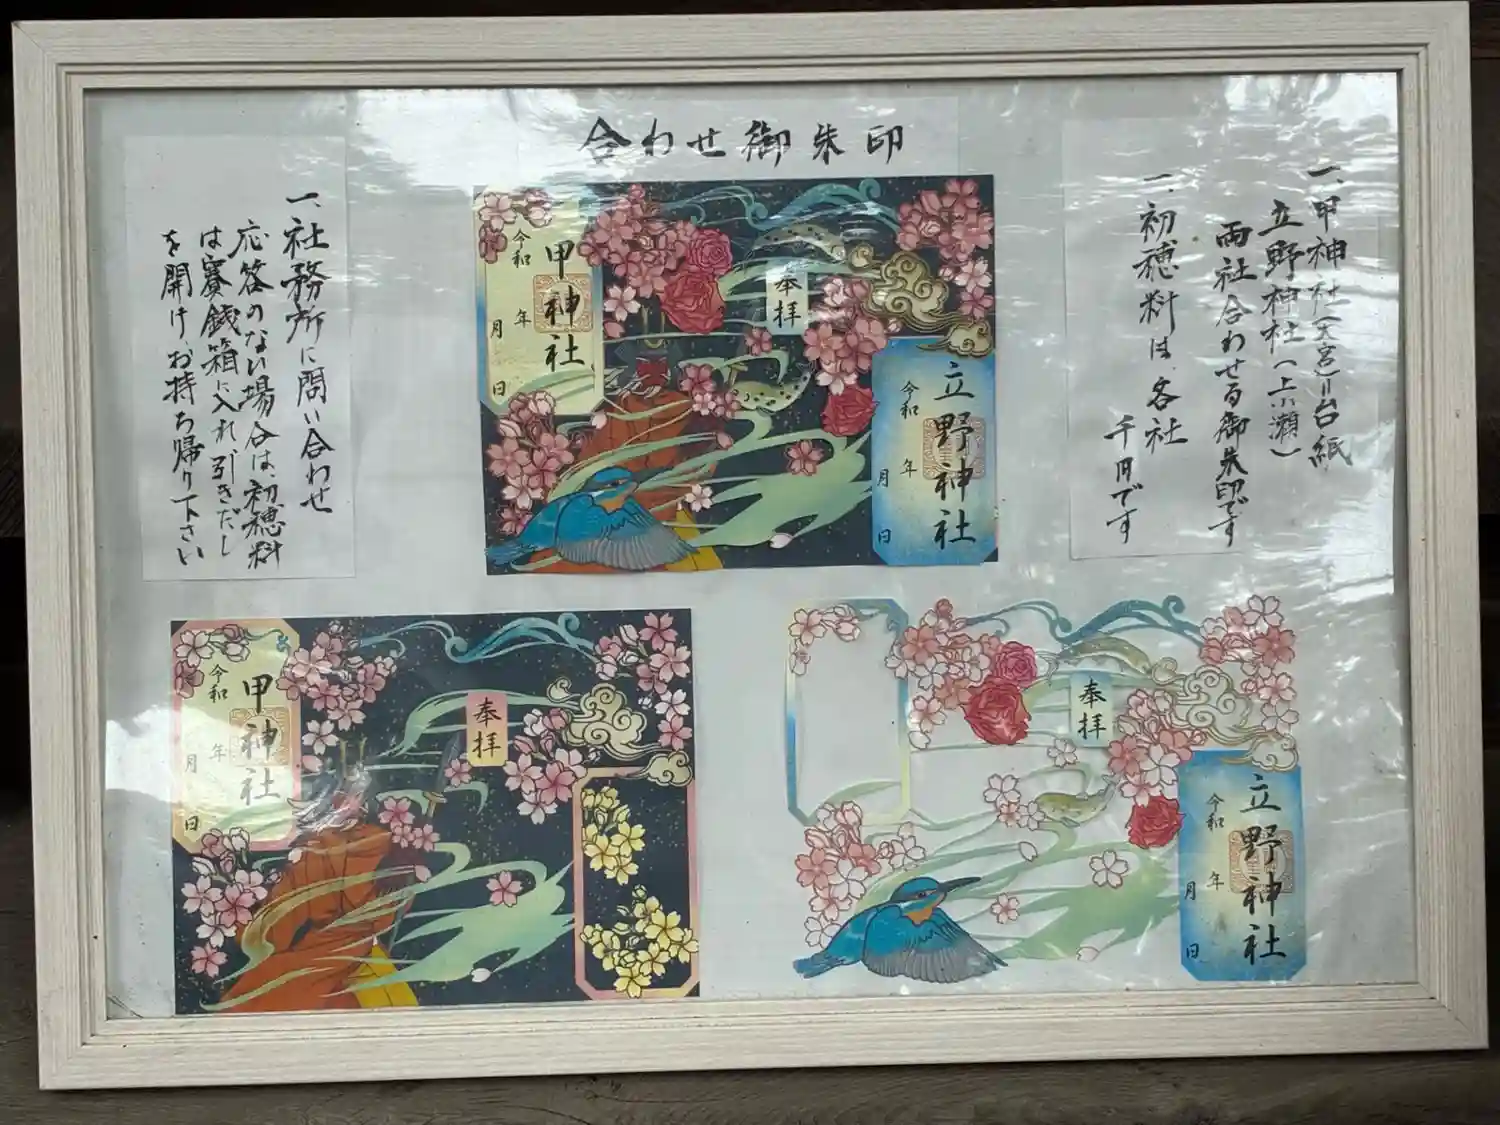 合わせ御朱印
一、甲神社(天宮)=台紙
立野神社(上小瀬)
両社合わせる御朱印です
一、初穂料は、各社
千円です
一、社務所に問い合わせ
応答のない場合は、初穂料
は賽銭箱に入れ、引きだし
を開け、お持ち帰り下さい
甲神社
令和
年
月
日
奉拝
立野神社
令和
年
月
日
甲神社
令和
年
月
日
奉拝
奉拝
立野神社
令和
年
月
日